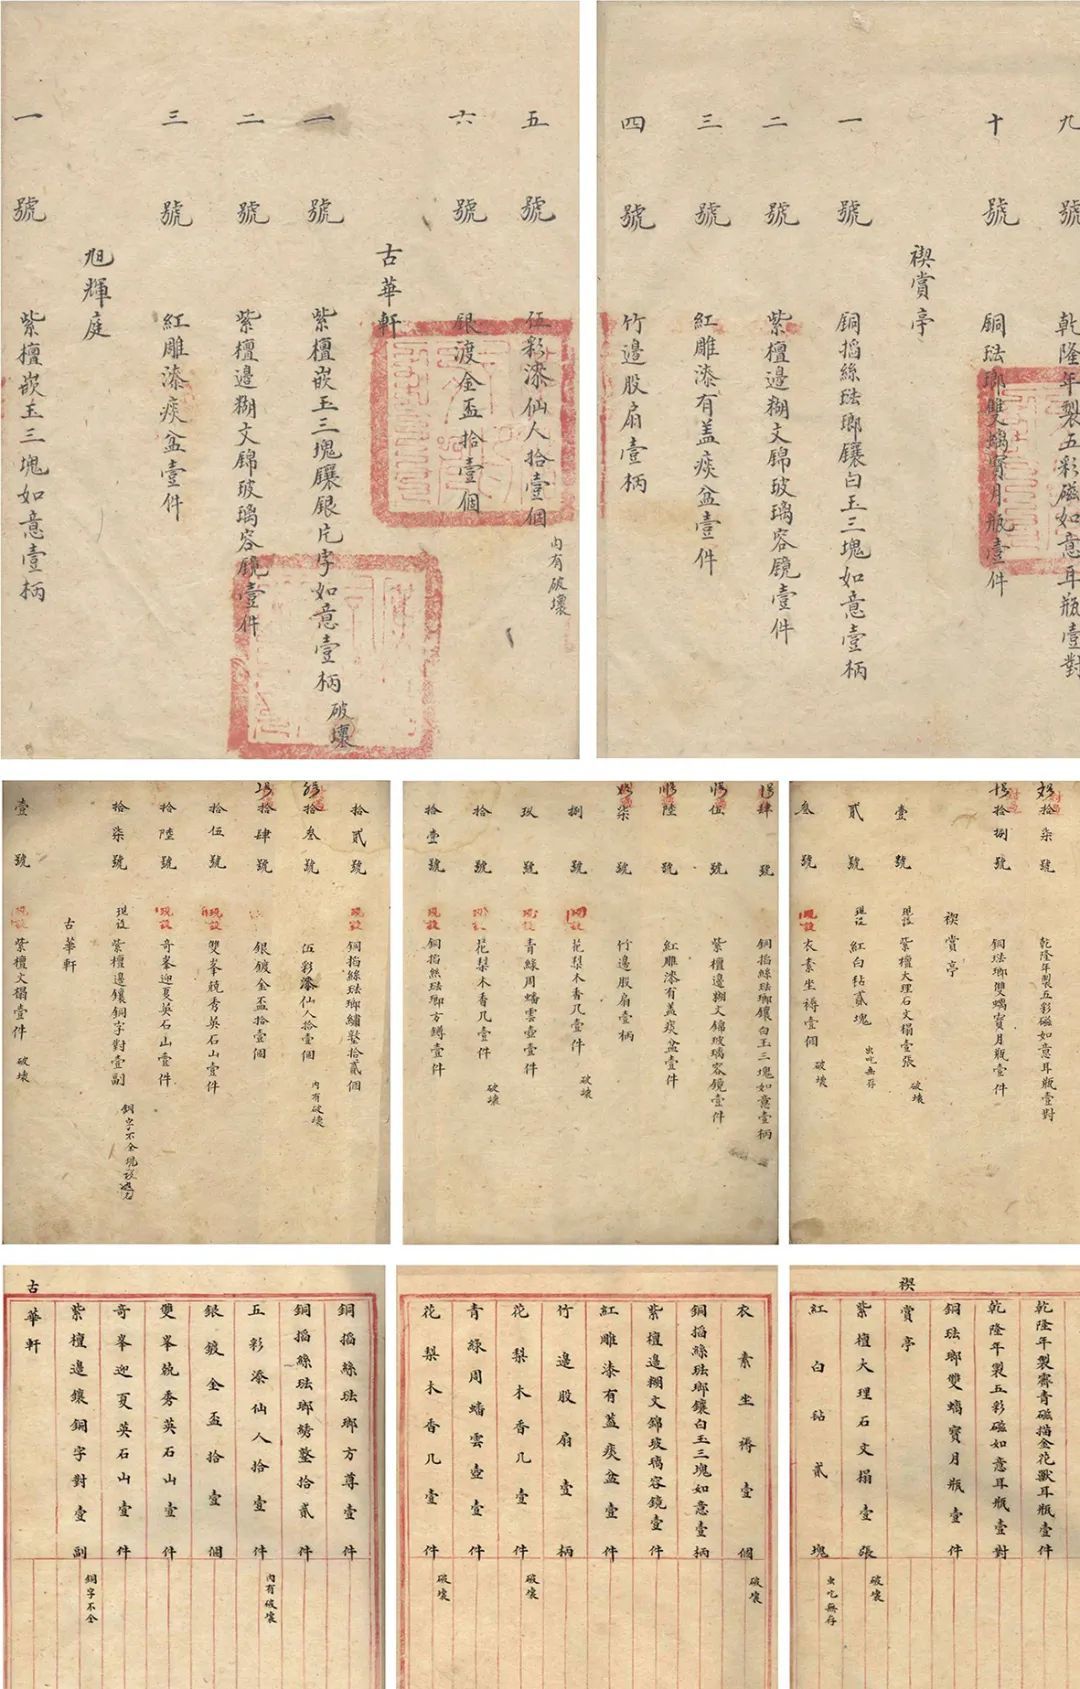 九號 乾隆年製五彩磁如意耳瓶壹對
十號 銅琺瑯雙螭寶月瓶壹件
禊賞亭
一號 銅搯絲琺瑯鑲白玉三塊如意壹柄
二號 紫檀邊糊文錦玻璃容鏡壹件
三號 紅雕漆有盖痰盆壹件
四號 竹邊股扇壹柄
五號 伍彩漆仙人拾壹個 内有破壞
六號 銀渡金盃拾壹個
古華軒
一號 紫檀嵌玉三塊鑲銀片字如意壹柄 破壞
二號 紫檀邊糊文錦玻璃容鏡壹件
三號 紅雕漆痰盆壹件
旭輝庭
一號 紫檀嵌玉三塊如意壹柄
拾柒號 乾隆年製五彩磁如意耳瓶壹對
拾捌號 銅琺瑯雙螭寶月瓶壹件
禊賞亭
壹號 現設 紫檀大理石文榻壹張 破壞
貳號 現設 紅白毡貳塊 虫吃無存
叁號 現設 衣素坐褥壹個 破壞
肆號 銅搯絲琺瑯鑲白玉三塊如意壹柄
伍號 紫檀邊糊文錦玻璃容鏡壹件
陸號 紅雕漆有盖痰盆壹件
柒號 竹邊股扇壹柄
捌號 花梨木香几壹件 破壞
玖號 現設 青綠周蟠雲壺壹件
拾號 現設 花梨木香几壹件 破壞
拾壹號 現設 銅搯絲琺瑯方罇壹件
拾貳號 現設 銅搯絲琺瑯繡墊拾貳個
拾叁號 伍彩漆仙人拾壹個 内有破壞
拾肆號 銀鍍金盃拾壹個
拾伍號 現設 雙峯競秀英石山壹件
拾陸號 現設 奇峯迎夏英石山壹件
拾柒號 現設 紫檀邊鑲銅字對壹副 銅字不全現設
古華軒
壹號 現設 紫檀文榻壹件 破壞
乾隆年製霽青磁描金花獸耳瓶壹件
乾隆年製五彩磁如意耳瓶壹對
銅琺瑯雙螭寶月瓶壹件
禊賞亭
紫檀大理石文榻壹張 破壞
紅白毡貳塊 虫吃無存
衣素坐褥壹個 破壞
銅搯絲琺瑯鑲白玉三塊如意壹柄
紫檀邊糊文錦玻璃容鏡壹件
紅雕漆有盖痰盆壹件
竹邊股扇壹柄
花梨木香几壹件 破壞
青綠周蟠雲壺壹件
花梨木香几壹件 破壞
銅搯絲琺瑯方尊壹件
銅搯絲琺瑯綉墊拾貳件
五彩漆仙人拾壹件 内有破壞
銀鍍金盃拾壹個
雙峯競秀英石山壹件
奇峯迎夏英石山壹件
紫檀邊鑲銅字對壹副 銅字不全
古華軒